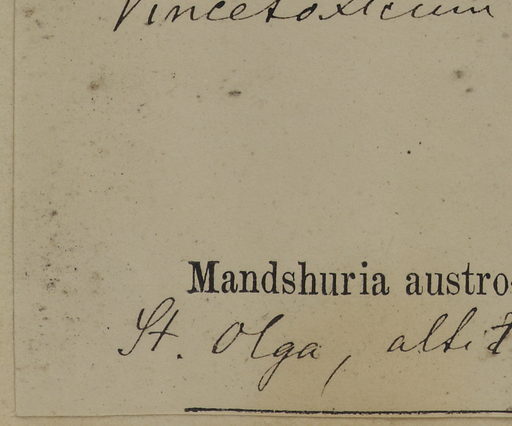 Vincetoxicum
Mandshuria austro-
St. Olga, altit